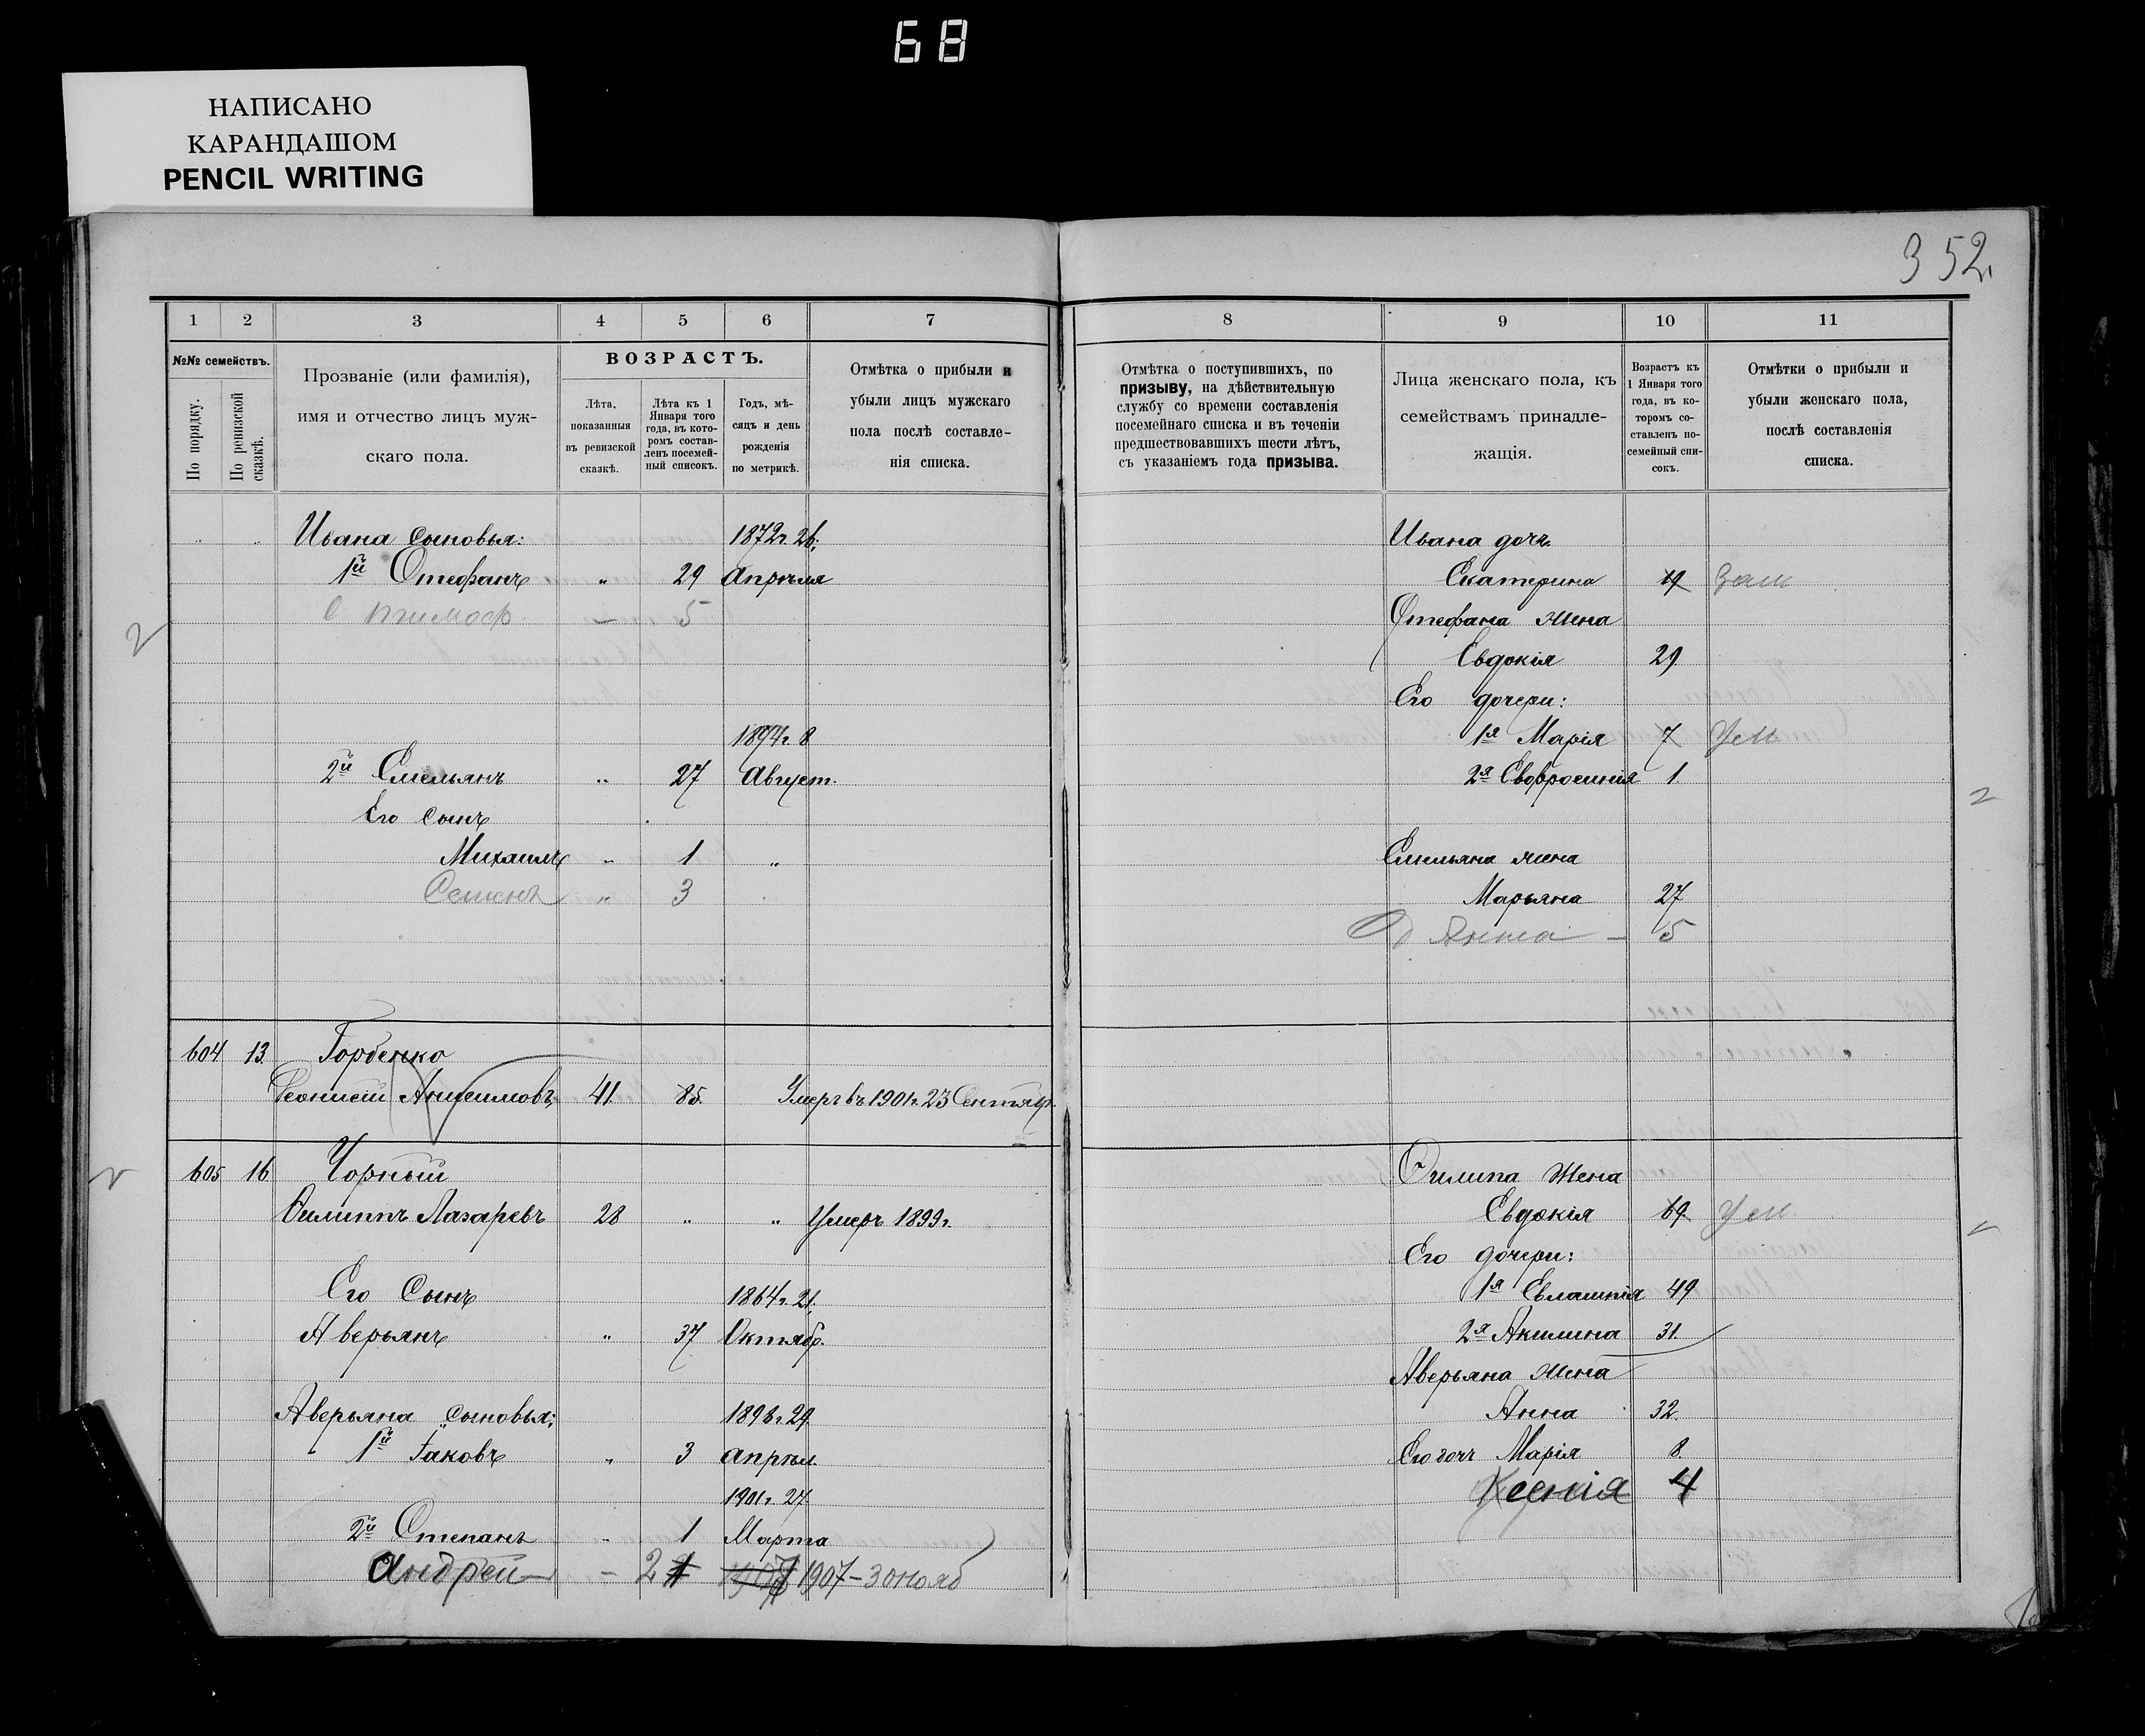 68
НАПИСАНО
КАРАНДАШОМ
PENCIL WRITING
352.
1 2 3 4 5 6 7
№№ семействъ.
По порядку.
По ревизской сказкѣ.
Прозваніе (или фамилія),
имя и отчество лицъ муж-
скаго пола.
ВОЗРАСТЪ.
Лѣта,
показанныя
въ ревизской
сказкѣ.
Лѣта къ 1
Января того
года, въ кото-
ромъ состав-
ленъ посемей-
ный списокъ.
Годъ, мѣ-
сяцъ и день
рожденія
по метрикѣ.
Отмѣтка о прибыли и
убыли лицъ мужскаго
пола послѣ составле-
нія списка.
Ивана сыновья: 1872г. 26.
1й Стефанъ " 29 Апрѣля
С Тимоф. — 5
2
1894г. 8
2й Емельянъ " 27 Август.
Его сынъ
Михаилъ " 1 "
Семенъ " 3
604 13. Горбенко
Анисимовъ 41. 85. Умеръ въ 1901г. 23 Сентяр.
605 16 Чорный
Филиппъ Лазаревъ 28 " " Умеръ 1899г.
Его Сынъ 1864г. 21.
Аверьянъ " 37 Октябр.
Аверьяна сыновья: 1898г. 29.
1й Іаковъ " 3 Апрѣл.
1901г. 27.
2й Степанъ " 1 Марта
Андрей — 2 1 1907 1907-30 нояб
8 9 10 11
Отмѣтка о поступившихъ, по
призыву, на дѣйствительную
службу со времени составленія
посемейнаго списка и въ теченіи
предшествовавшихъ шести лѣтъ,
съ указаніемъ года призыва.
Лица женскаго пола, къ
семействамъ принадле-
жащія.
Возрастъ къ
1 Января того
года, въ ко-
торомъ со-
ставленъ по-
семейный спи-
сокъ.
Отмѣтки о прибыли и
убыли женскаго пола,
послѣ составленія
списка.
Ивана дочь
Екатерина 19 Зам
Стефана жена
Евдокія 29.
Его дочери:
1я Марія 7 Ум
2я Евфросинія 1.
2
Емельяна жена
Марьяна 27
Д Анна — 5
Филипа жена
Евдокія 69. Ум.
Его дочери:
1я Евлампія 49
2я Акилина 31.
Аверьяна жена
Анна 32.
Его дочь Марія 8.
Ксенія 4